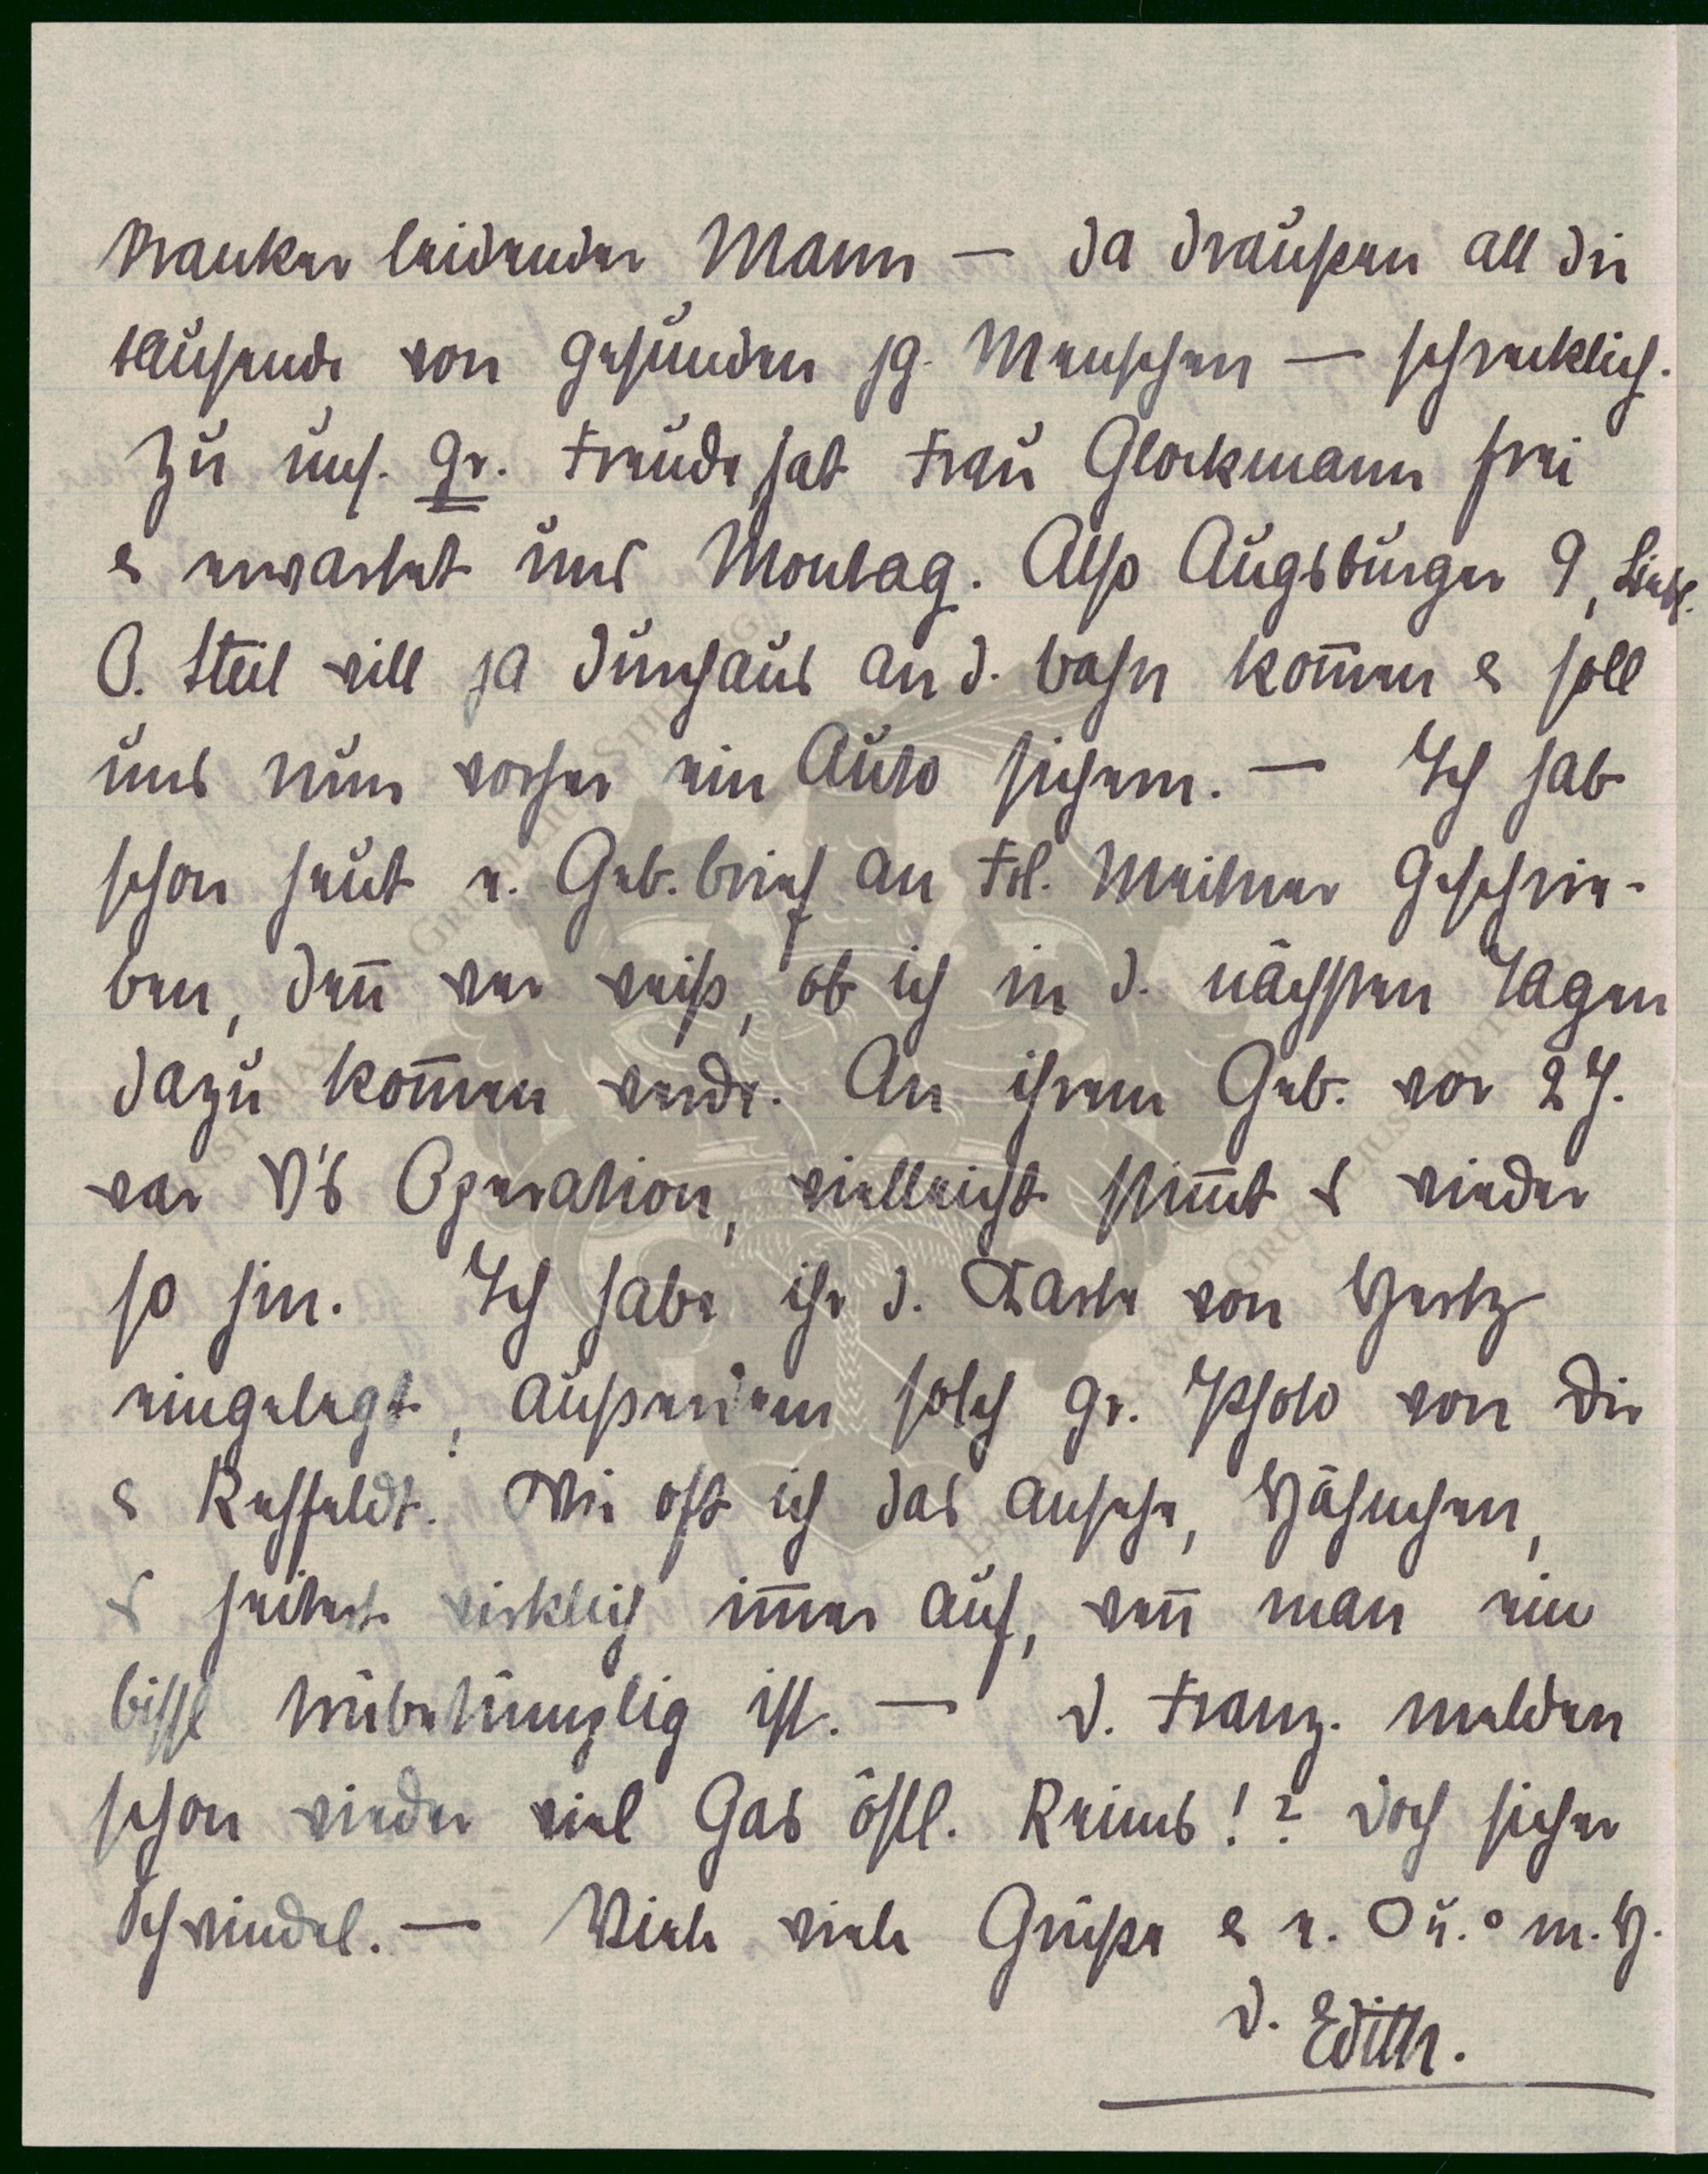 kranker leidender Mann — da draußen all die
tausende von gesunden jg. Menschen — schrecklich.
Zu uns. gr. Freude hat Frau Glockmann frei
& erwartet uns Montag. Also Augsburger 9, Liebl.
O. Steil will ja durchaus an d. bahn kom̄en & soll
uns nun vorher ein Auto sichern. — Ich hab
schon heut e. Geb. brief an Frl. Meitner geschrie-
ben, den̄ wer weiß, ob ich in d. nächsten Tagen
dazu kom̄en werde. An ihrem Geb. vor 2 J.
war V's Operation, vielleicht stim̄t s wieder
so hin. Ich habe ihr d. Karte von Hertz
eingelegt, außerdem solch gr. Photo von Dir
& Rehfeldt. Wie oft ich das ansehe, Hähnchen,
s heitert wirklich im̄er auf, wen̄ man ein
bissl trübetümplig ist. — D. Franz. melden
schon wieder viel Gas östl. Reims!? Doch sicher
Schwindel. — Viele viele Grüße & e. O u. o m. H.
D. Edith.
ERNST MAX VON GRUNELIUS-STIFTUNG